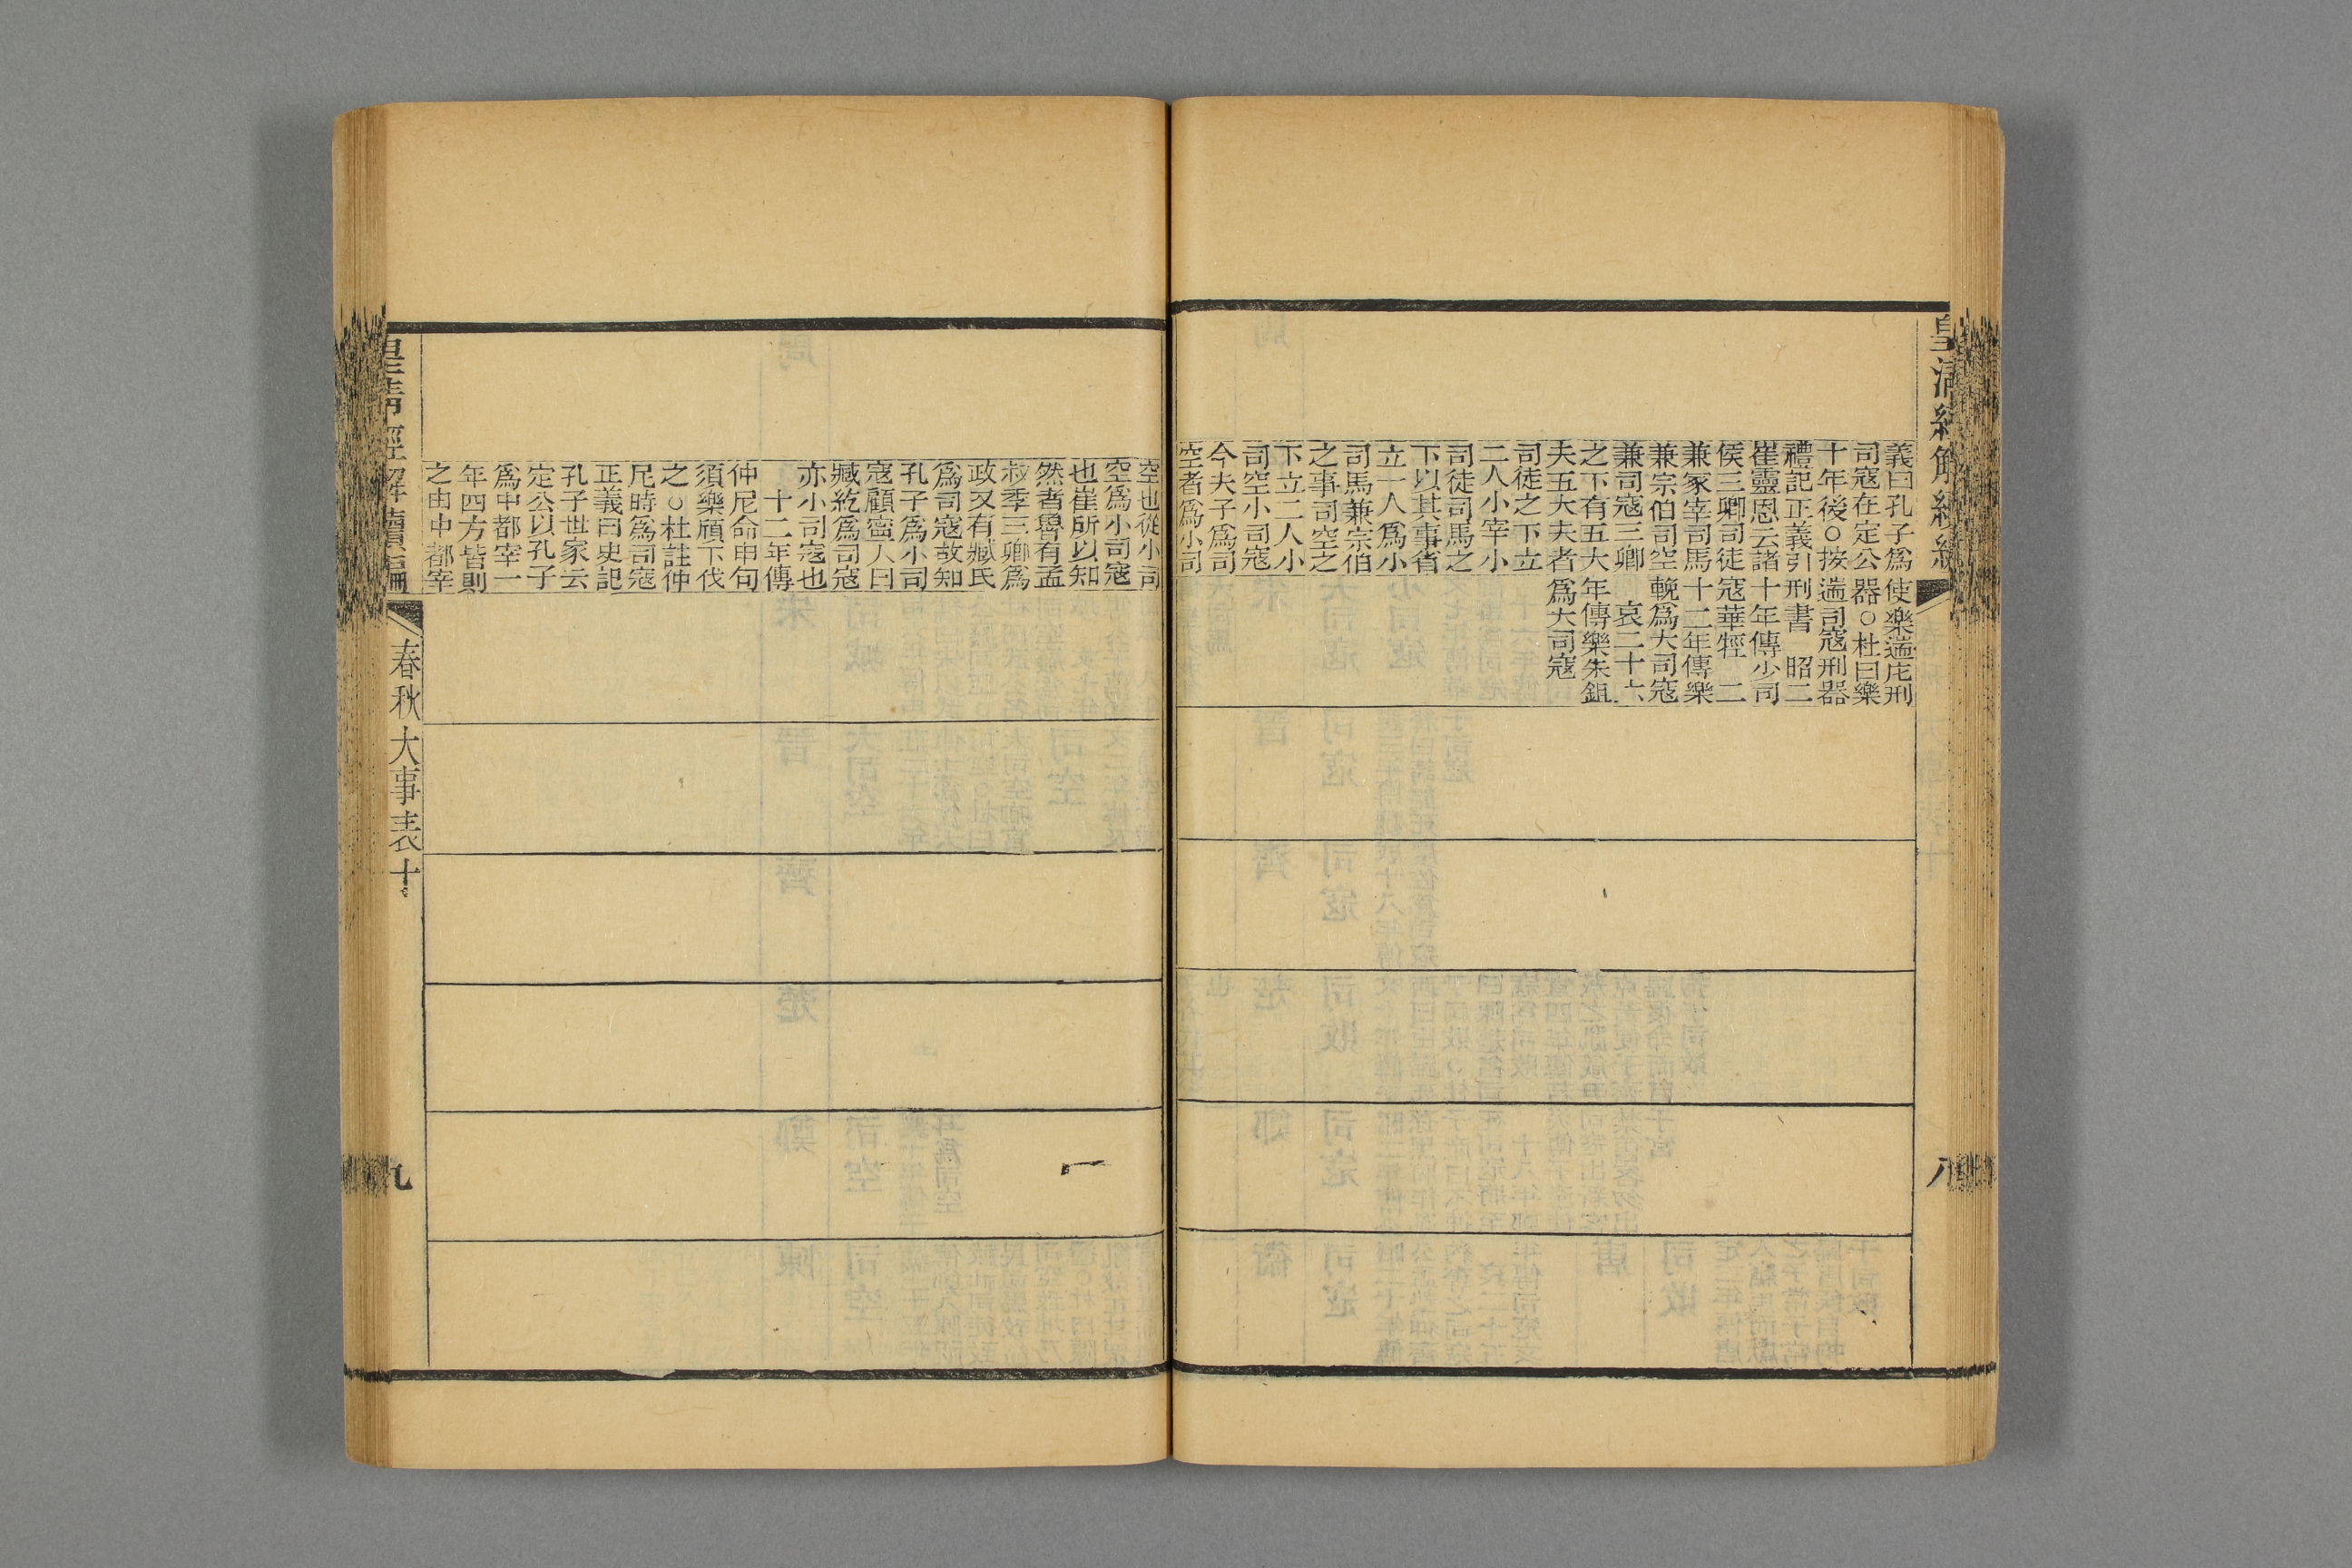 皇清經解續編
義曰孔子爲
司寇在定公
十年後○按
禮記正義引
崔靈恩云諸
侯三卿司徒
兼冢宰司馬
兼宗伯司空
兼司寇三卿
之下有五大
夫五大夫者
司徒之下立
二人小宰小
司徒司馬之
下以其事省
立一人爲小
司馬兼宗伯
之事司空之
下立二人小
司空小司寇
今夫子爲司
空者爲小司
使樂遄庀刑
器○杜曰樂
遄司寇刑器
刑書　昭二
十年傳少司
寇華牼　二
十二年傳樂
輓爲大司寇
　哀二十六
年傳樂朱鉏
爲大司寇
八
空也從小司
空爲小司寇
也崔所以知
然者魯有孟
叔季三卿爲
政又有臧氏
爲司寇故知
孔子爲小司
寇顧寗人曰
臧紇爲司寇
亦小司寇也
　十二年傳
仲尼命申句
須樂頎下伐
之○杜註仲
尼時爲司寇
正義曰史記
孔子世家云
定公以孔子
爲中都宰一
年四方皆則
之由中都宰
皇清經解續編
春秋大事表十
九